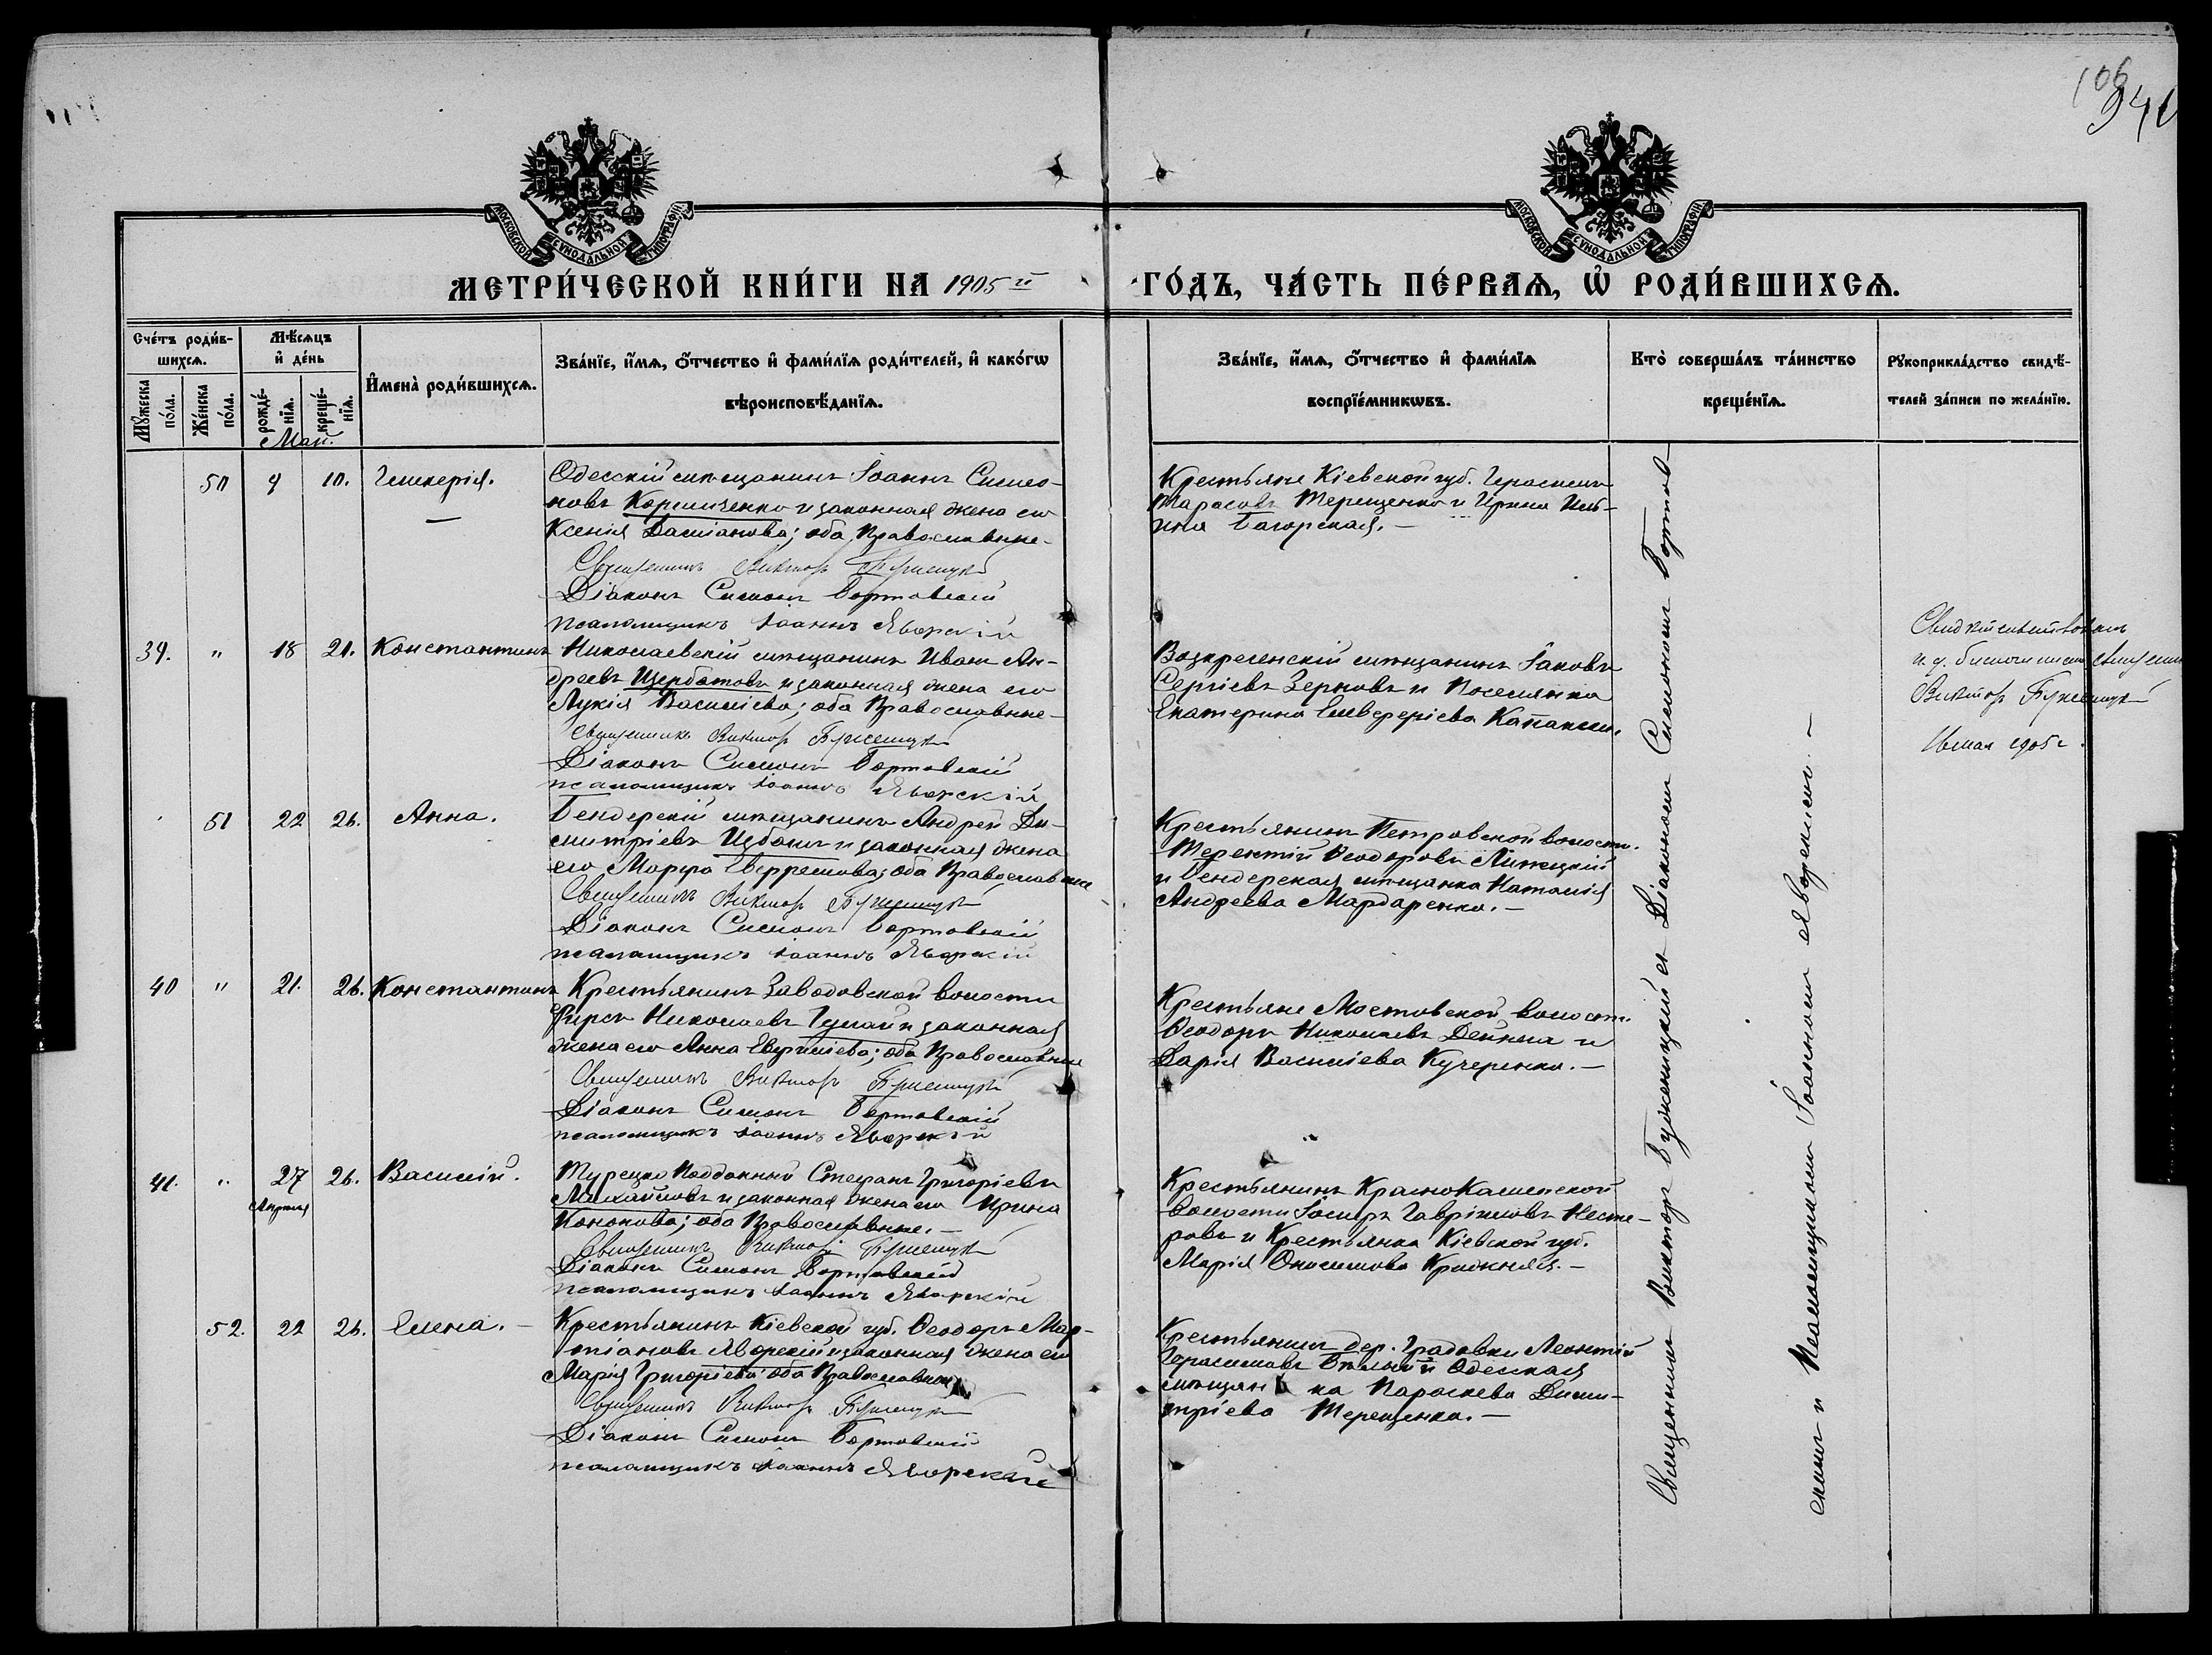 106
МОСКОВСКОЙ СΥНОДАЛЬНОЙ ТИПОГРАФІИ
МОСКОВСКОЙ СΥНОДАЛЬНОЙ ТИПОГРАФІИ
МЕТРИ́ЧЕСКОЙ КНИ́ГИ НА 1905 й ГО́ДЪ, ЧА́СТЬ ПЕ́РВАѦ, Ѡ҆ РОДИ́ВШИХСѦ.
Сче́тъ роди́в-
шихсѧ.
Мꙋ́жеска по́ла.
Же́нска по́ла.
Мѣ́сѧцъ
и҆ де́нь
рожде́-нїѧ.
креще́-нїѧ.
И҆мена̀ роди́вшихсѧ.
Зва́нїе, и҆́мѧ, ѻ҆́тчество и҆ фами́лїѧ роди́телей, и҆ како́гѡ
вѣроисповѣ́данїѧ.
Зва́нїе, и҆́мѧ, ѻ҆́тчество и҆ фами́лїѧ
воспрїе́мникѡвъ.
Кто̀ соверша́лъ та́инство
креще́нїѧ.
Рꙋкоприкла́дство свидѣ́-
телей за́писи по жела́нїю.
Май.
50 4 10. Гликерія.
Одесскій мѣщанинъ Іоаннъ Симео-
новъ Корниченко и законная жена его
Ксенія Даміанова; оба Православные.
Священникъ Викторъ
Діаконъ Симеонъ Бортовскій
псаломщикъ Іоаннъ Яворскій
Крестьяне Кіевской губ. Герасимъ
Тарасовъ Терещенко и Ирина Иль-
ина Багорская.
39. " 18 21. Константинъ
Николаевскій мѣщанинъ Иванъ Ан-
дреевъ Щербатовъ и законная жена его
Лукія Василіева; оба Православные
Священникъ Викторъ
Діаконъ Симеонъ Бортовскій
псаломщикъ Іоаннъ Яворскій
Вознесенскій мѣщанинъ Іаковъ
Сергіевъ Зерновъ и Поселянка
Екатерина Елевферіева
Священникъ
Викторъ
1905 г.
51 22 26. Анна.
Бендерскій мѣщанинъ Андрей Ди-
митріевъ Цибакъ и законная жена
его Марфа Евфремова; оба Православные
Священникъ Викторъ
Діаконъ Симеонъ Бортовскій
псаломщикъ Іоаннъ Яворскій
Крестьянинъ Петровской волости
Терентій Ѳеодоровъ Липецкій
и Бендерская мѣщанка Наталія
Андреева Мардаренко.
40 " 21. 26. Константинъ
Крестьянинъ Заводовской волости
Фирсъ Николаевъ Гулай и законная
жена его Анна Евфиміева; оба Православные
Священникъ Викторъ
Діаконъ Симеонъ Бортовскій
псаломщикъ Іоаннъ Яворскій
Крестьяне Мостовской волости
Ѳеодоръ Николаевъ Дейнна и
Дарія Василіева Кучеренко.
41. " 27 Апрѣля 26. Василій.
Турецко Подданный Стефанъ Григоріевъ
Михайловъ и законная жена его Ирина
Кононова; оба Православные.
Священникъ Викторъ
Діаконъ Симеонъ Бортовскій
псаломщикъ Іоаннъ Яворскій
Крестьянинъ КрасноКаменской
волости Іосифъ Гавріиловъ Несте-
ровъ и Крестьянка Кіевской губ.
Марія Онисимова
52. 22 26. Елена.
Крестьянинъ Кіевской губ. Ѳеодоръ Мар-
тіановъ Яворскій и законная жена его
Марія Григоріева оба Православные
Священникъ Викторъ
Діаконъ Симеонъ Бортовскій
псаломщикъ Іоаннъ Яворскій
Крестьянинъ дер. Градовки Леонтій
Герасимовъ Бѣлый и Одесская
мѣщанка Параскева Дими-
тріева Терещенко.
Священникъ Викторъ Буженицкій съ Діакономъ Симеономъ Бортов-
скимъ и Псаломщикомъ Іоанномъ Яворскимъ.